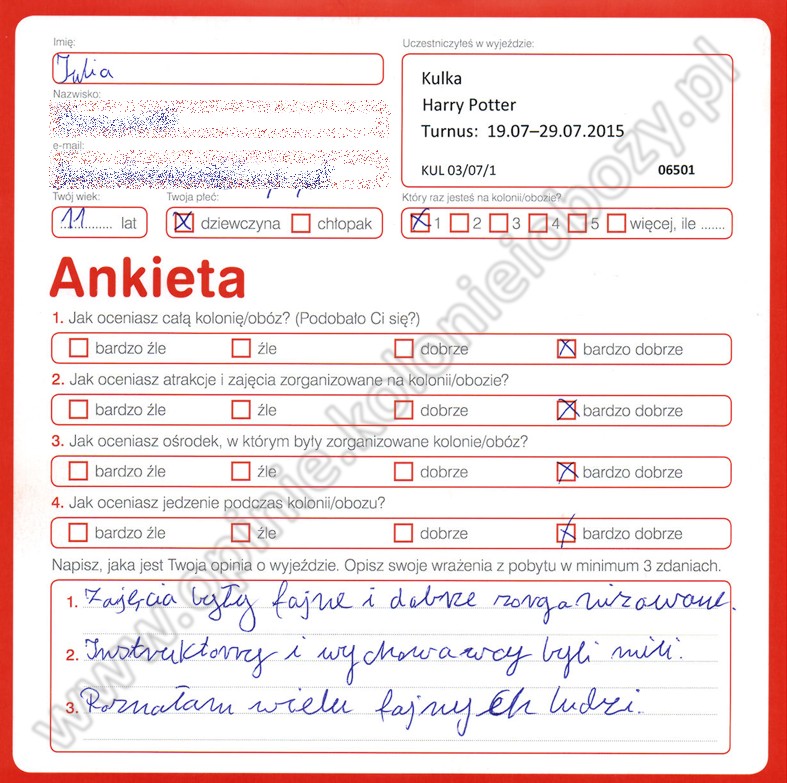 Imię:
Julia
Uczestniczyłeś w wyjeździe:
Kulka
Harry Potter
Turnus: 19.07–29.07.2015
KUL 03/07/1 06501
Nazwisko:
e-mail:
Twój wiek:
11 lat
Twoja płeć:
dziewczyna chłopak
Który raz jesteś na kolonii/obozie?
1 2 3 4 5 więcej, ile .......
Ankieta
1. Jak oceniasz całą kolonię/obóz? (Podobało Ci się?)
bardzo źle źle dobrze bardzo dobrze
2. Jak oceniasz atrakcje i zajęcia zorganizowane na kolonii/obozie?
bardzo źle źle dobrze bardzo dobrze
3. Jak oceniasz ośrodek, w którym były zorganizowane kolonie/obóz?
bardzo źle źle dobrze bardzo dobrze
4. Jak oceniasz jedzenie podczas kolonii/obozu?
bardzo źle źle dobrze bardzo dobrze
Napisz, jaka jest Twoja opinia o wyjeździe. Opisz swoje wrażenia z pobytu w minimum 3 zdaniach.
1. Zajęcia były fajne i dobrze zorganizowane.
2. Instruktorzy i wychowawcy byli mili.
3. Poznałam wielu fajnych ludzi.
www.opinie.kolonieiobozy.pl